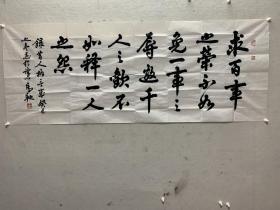 求百事
之荣不如
免一事之
辱邀千
人之歓不
如释一人
之怨
录古人格言